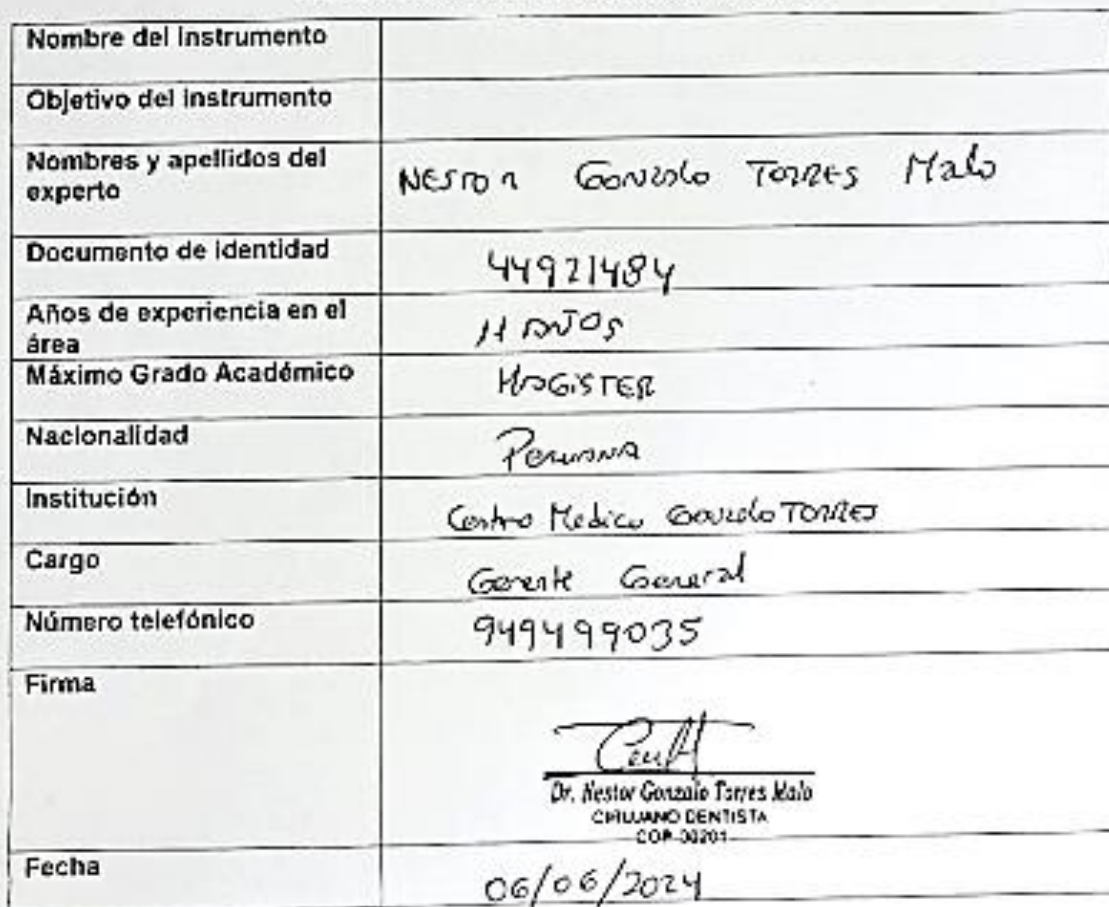 Nombre del Instrumento
Objetivo del instrumento
Nombres y apellidos del
experto
NESTOR Gonzalo TORRES Malo
Documento de identidad
44921484
Años de experiencia en el
área
11 AÑOS
Máximo Grado Académico
MAGISTER
Nacionalidad
Peruana
Institución
Centro Medico Gonzalo TORRES
Cargo
Gerente General
Número telefónico
949499035
Firma
Dr. Nestor Gonzalo Torres Malo
CIRUJANO DENTISTA
COP
Fecha
06/06/2024